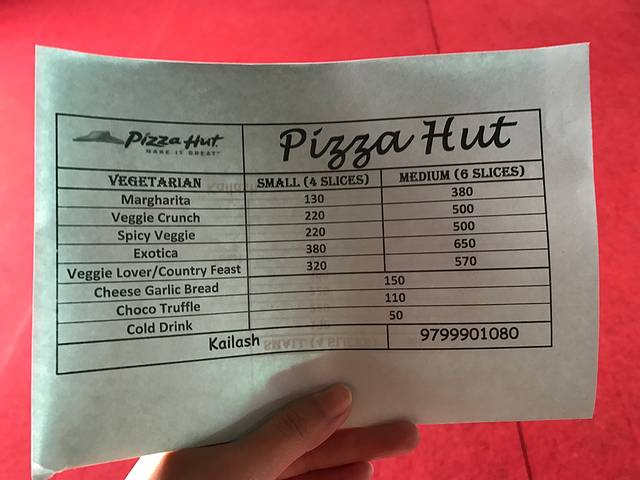 Pizza Hut
MAKE IT GREAT
Pizza Hut
VEGETARIAN SMALL (4 SLICES) MEDIUM (6 SLICES)
Margharita 130 380
Veggie Crunch 220 500
Spicy Veggie 220 500
Exotica 380 650
Veggie Lover/Country Feast 320 570
Cheese Garlic Bread 150
Choco Truffle 110
Cold Drink 50
Kailash 9799901080